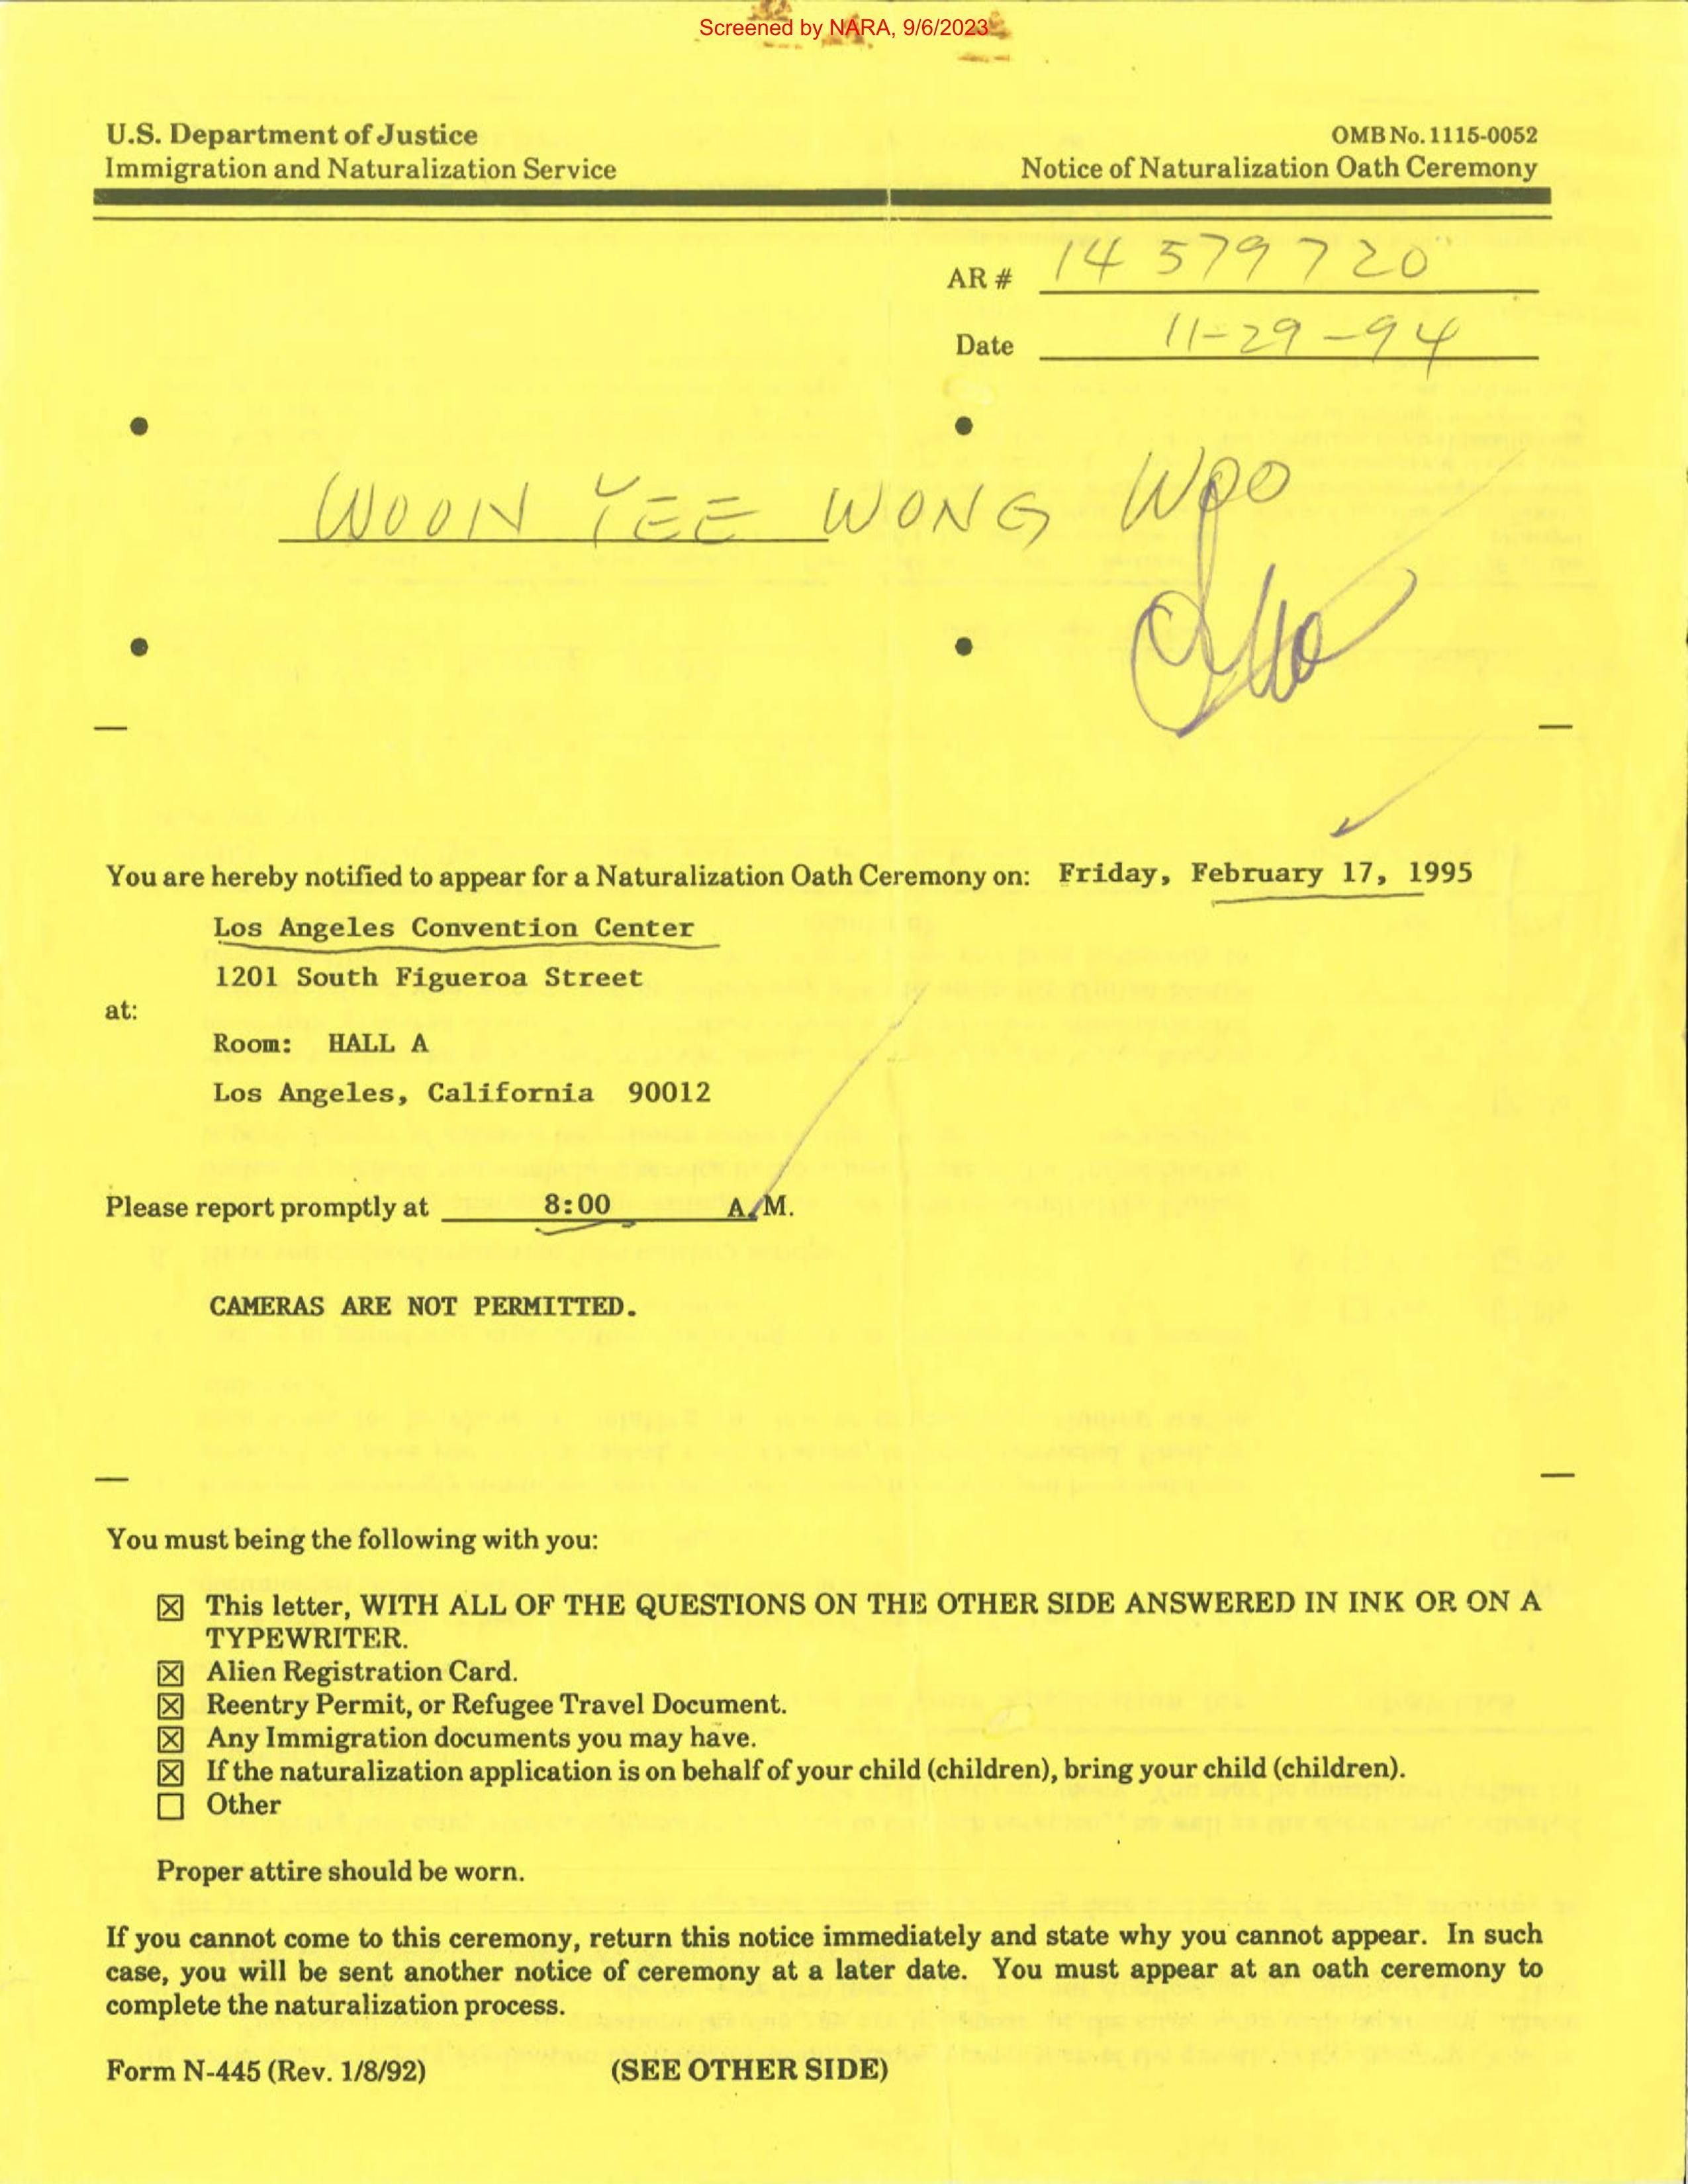 Screened by NARA, 9/6/2023
U.S. Department of Justice
Immigration and Naturalization Service
OMB No. 1115-0052
Notice of Naturalization Oath Ceremony
AR # 14 579 720
Date 11-29-94
WOON YEE WONG WOO
You are hereby notified to appear for a Naturalization Oath Ceremony on: Friday, February 17, 1995
Los Angeles Convention Center
1201 South Figueroa Street
at:
Room: HALL A
Los Angeles, California 90012
Please report promptly at 8:00 A.M.
CAMERAS ARE NOT PERMITTED.
You must being the following with you:
☒ This letter, WITH ALL OF THE QUESTIONS ON THE OTHER SIDE ANSWERED IN INK OR ON A
TYPEWRITER.
☒ Alien Registration Card.
☒ Reentry Permit, or Refugee Travel Document.
☒ Any Immigration documents you may have.
☒ If the naturalization application is on behalf of your child (children), bring your child (children).
☐ Other
Proper attire should be worn.
If you cannot come to this ceremony, return this notice immediately and state why you cannot appear. In such
case, you will be sent another notice of ceremony at a later date. You must appear at an oath ceremony to
complete the naturalization process.
Form N-445 (Rev. 1/8/92)
(SEE OTHER SIDE)